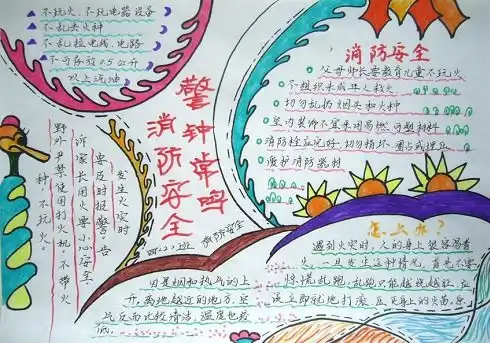 不玩火、不玩电器设备
不乱丢火种
不乱拉电线、电路
不可存放0.5公斤
以上汽油
警钟常鸣
消防安全
发生火灾时
要及时报警。告
诉家长用火要小心安全
野外严禁使用打火机。不带火
种，不玩火。
四（2）班
消防安全
父母师长要教育儿童不玩火
不组织未成年人救火
切勿乱扔烟头和火种
室内装饰不宜采用易燃、可塑材料
消防栓应完好，切勿损坏、圈占或埋压
爱护消防器材
怎么办？
遇到火灾时，人的身上很容易着
火，一旦发生这种情况，首先不要
惊慌乱跑，乱跑只能越烧越旺，应
该立即就地打滚，压灭身上的火苗。
因是烟和热气的上
升，离地越近的地方，空
气反而比较清洁，温度也较
低。